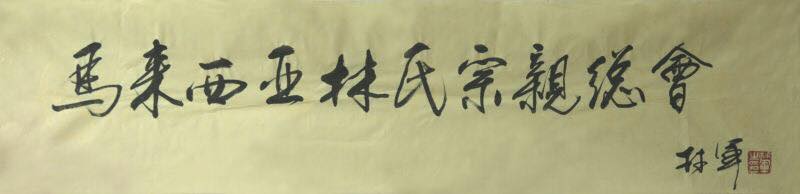 馬来西亚林氏宗親総會
林軍